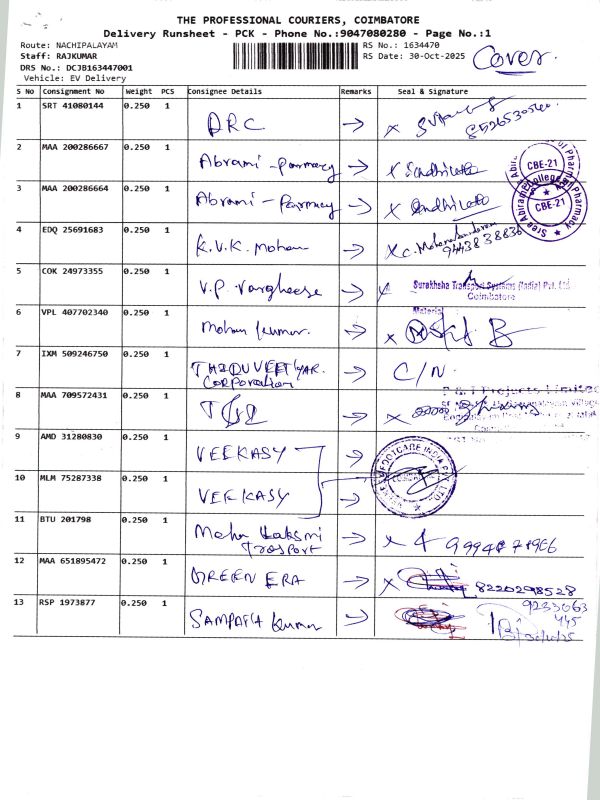 THE PROFESSIONAL COURIERS, COIMBATORE
Delivery Runsheet - PCK - Phone No.:9047080280 - Page No.:1
Route: NACHIPALAYAM
RS No.: 1634470
Staff: RAJKUMAR
RS Date: 30-Oct-2025
Cover.
DRS No.: DCJB163447001
Vehicle: EV Delivery
S No Consignment No Weight PCS Consignee Details Remarks Seal & Signature
1 SRT 41080144 0.250 1 DRC →
2 MAA 200286667 0.250 1 Abrami - Parmacy → x
3 MAA 200286664 0.250 1 Abrami - Parmacy → x
CBE-21
CBE-21
Sree Abirami College of Pharmacy
4 EDQ 25691683 0.250 1 K.V.K. Mohan → x
5 COK 24973355 0.250 1 V.P. Vargheese →
Surakhsha Transport Systems (India) Pvt. Ltd
Coimbatore
6 VPL 407702340 0.250 1 Mohan kumar. → x
Material
7 IXM 509246750 0.250 1 THIRUVEETIYAR. → C/N.
Corporation
8 MAA 709572431 0.250 1 → x
P & T Projects Limited
9 AMD 31280830 0.250 1 VEEKASY →
FOOTCARE INDIA PVT LTD
10 MLM 75287338 0.250 1 VEEKASY →
11 BTU 201798 0.250 1 Maha Laksmi → x
Trasport
12 MAA 651895472 0.250 1 GREEN ERA → x 8220298528
13 RSP 1973877 0.250 1 SAMPATH Kumar → 9233063
445